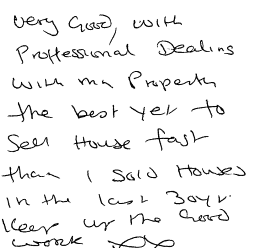 very Good, with
Proffessional Dealins
with my Property
the best yet to
Sell House fast
than I sold Houses
in the last 30yr.
Keep up the Good
work